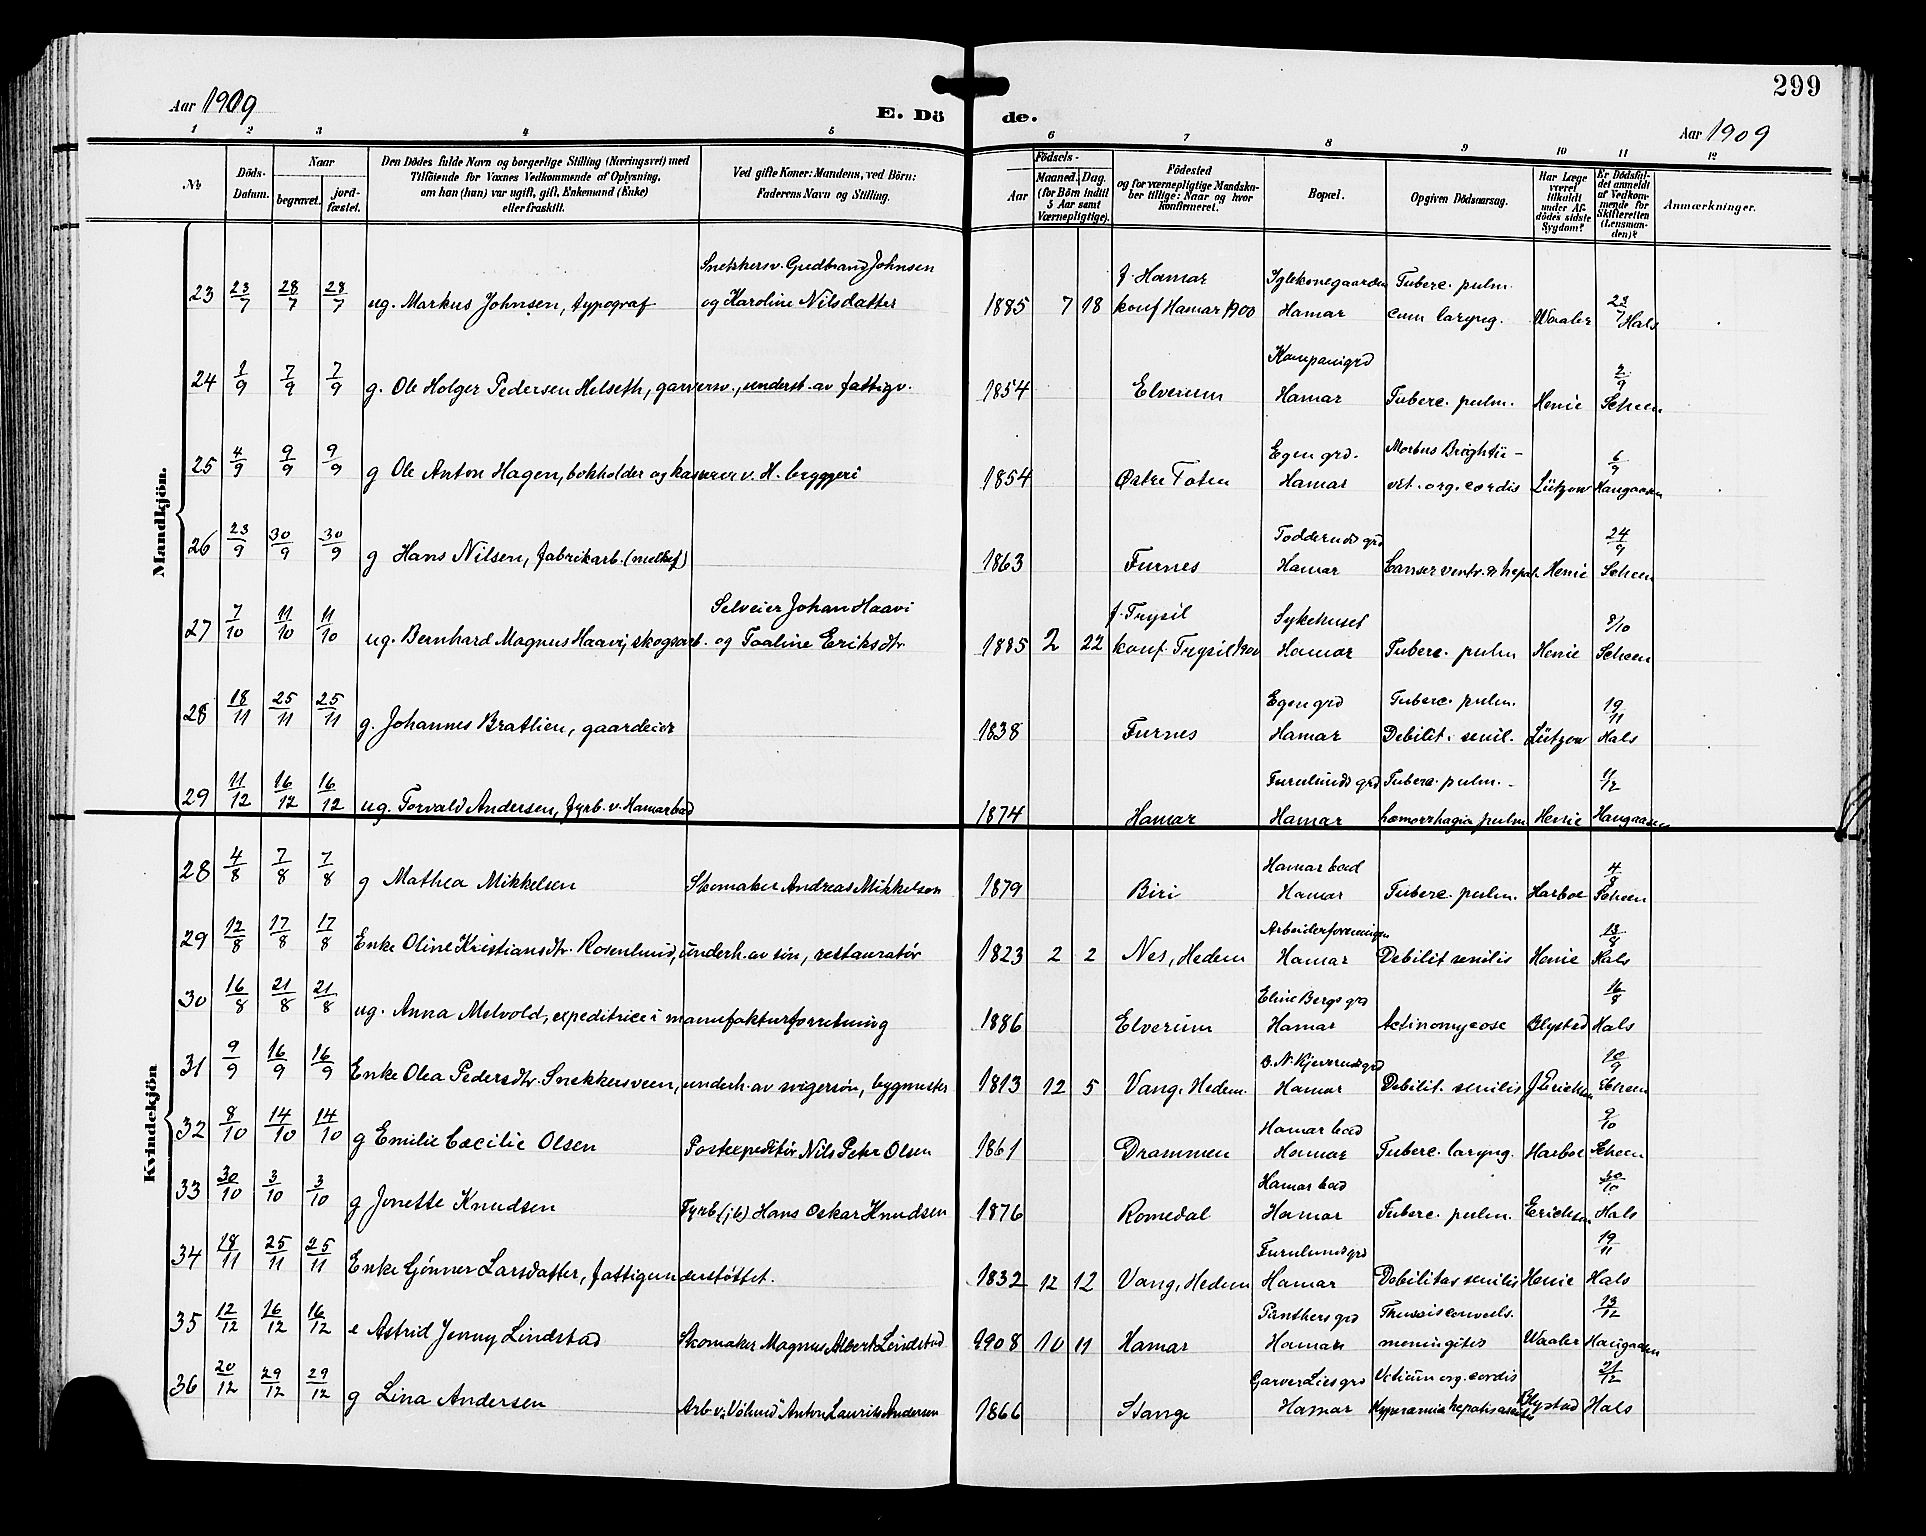 299
Aar 1909
E. Dö de.
Aar 1909
1 2 3 4 5 6 7 8 9 10 11 12
No
Döds-Datum.
Naar
begravet.
jord-fæstet.
Den Dödes fulde Navn og borgerlige Stilling (Næringsvei) med
Tilföiende for Voxnes Vedkommende af Oplysning,
om han (hun) var ugift, gift, Enkemand (Enke)
eller fraskilt.
Ved gifte Koner: Mandens, ved Börn:
Faderens Navn og Stilling.
Födsels-
Aar
Maaned. Dag.
(for Börn indtil
5 Aar samt
Værnepligtige).
Födested
og for værnepligtige Mandska-
ber tillige: Naar og hvor
konfirmeret.
Bopæl.
Opgiven Dödsaarsag.
Har Læge
været
tilkaldt
under Af-
dödes sidste
Sygdom?
Er Dödsfal-
det anmeldt
af Vedkom-
mende for
Skifteretten
(Lensman-
den)?
Anmærkninger.
Mandkjön.
Snekkersv. Gudbrand Johnsen f. Hamar Iglekonegaarden Tuberc. pulm.
23 23/7 28/7 28/7 ug. Markus Johnsen, typograf og Karoline Nilsdatter 1885 7 18 konf Hamar 1900 Hamar cum laryng. Waaler 23/7 Hals
Kompanigrd
24 2/9 7/9 7/9 g. Ole Holger Pedersen Helseth, garversv., underst. av fattigv. 1854 Elverum Hamar Tuberc. pulm. Henie 2/9 Scheen
Egen grd. Morbus Brightii -
25 4/9 9/9 9/9 g Ole Anton Hagen, bokholder og kasserer v. H. bryggeri 1854 Østre Toten Hamar vit. org. cordis Lützow 6/9 Haugaasen
Fodderuds grd
26 23/9 30/9 30/9 g Hans Nilsen, fabrikarb. (melkef) 1863 Furnes Hamar Canser ventr. & hepat. Henie 24/9 Scheen
Selveier Johan Haavi f. Trysil Sykehuset
27 7/10 11/10 11/10 ug. Bernhard Magnus Haavi, skogsarb. og Toaline Eriksdtr 1885 2 22 konf. Trysil 1900 Hamar Tuberc. pulm Henie 8/10 Scheen
Egen grd Tuberc. pulm.
28 18/11 25/11 25/11 g. Johannes Bratlien, gaardeier 1838 Furnes Hamar Debilit. senil. Lützow 19/11 Hals
Furulunds grd Tuberc. pulm. -
29 11/12 16/12 16/12 ug. Torvald Andersen, fyrb. v. Hamar bad 1874 Hamar Hamar hæmorrhagia pulm Henie Haugaasen
Kvindekjön
Hamar bad
28 4/8 7/8 7/8 g Mathea Mikkelsen Skomaker Andreas Mikkelsen 1879 Biri Hamar Tuberc. pulm. Harboe 4/8 Scheen
Arbeiderforeningen
29 12/8 17/8 17/8 Enke Oline Kristiansdtr. Rosenlund, underh. av søn, restauratør 1823 2 2 Nes, Hedem Hamar Debilit senilis Henie 13/8 Hals
Eline Bergs grd
30 16/8 21/8 21/8 ug. Anna Melvold, expeditrice i manufakturforretning 1886 Elverum Hamar Actinomycose Blystad 16/8 Hals
O. N. Kjærrudsgrd
31 9/9 16/9 16/9 Enke Olea Pedersdtr. Snekkersveen, underh. av svigersøn, bygmester 1813 12 5 Vang, Hedem. Hamar Debilit. senilis J Erichsen 10/9 Scheen
Hamar bad
32 8/10 14/10 14/10 g Emilie Cæcilie Olsen Postexpeditør Nils Peter Olsen 1861 Drammen Hamar Tuberc. laryng. Harboe 9/10 Scheen
Hamar bad
33 30/10 3/10 3/10 g Jonette Knudsen Fyrb (jb) Hans Oskar Knudsen 1876 Romedal Hamar Tuberc. pulm. Erichsen 30/10 Hals
Furulunds grd
34 18/11 25/11 25/11 Enke Gønner Larsdatter, fattigunderstøttet. 1832 12 12 Vang, Hedem Hamar Debilitas senilis Henie 19/11 Hals
Panthers grd Thussis convuls.
35 12/12 16/12 16/12 e Astrid Jenny Lindstad Skomaker Magnus Albert Lindstad 1908 10 11 Hamar Hamar meningitis Waaler 13/12 Haugaasen
Garver Lies grd Vitium org. cordis
36 20/12 29/12 29/12 g Lina Andersen Arb. v. "Vølund" Anton Laurits Andersen 1866 Stange Hamar Hyperæmia hepatis ascites Blystad 21/12 Hals